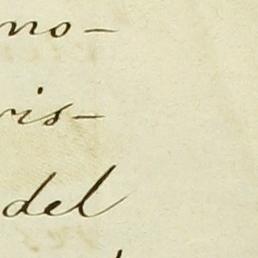 no-
ris-
del